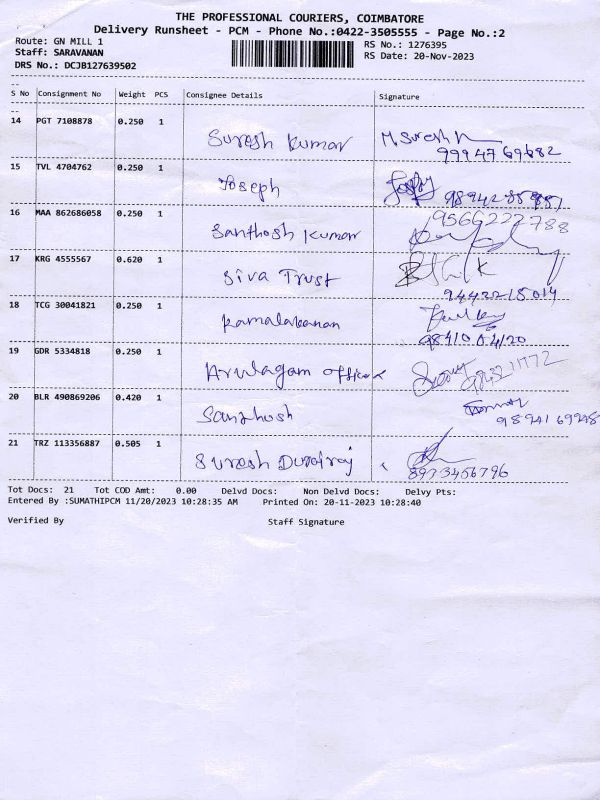 THE PROFESSIONAL COURIERS, COIMBATORE
Delivery Runsheet - PCM - Phone No.:0422-3505555 - Page No.:2
Route: GN MILL 1 RS No.: 1276395
Staff: SARAVANAN RS Date: 20-Nov-2023
DRS No.: DCJB127639502
S No Consignment No Weight PCS Consignee Details Signature
14 PGT 7108878 0.250 1 Suresh Kumar M. Suresh 99947 69682
15 TVL 4704762 0.250 1 Joseph
16 MAA 862686058 0.250 1 Santhosh Kumar 9566222788
17 KRG 4555567 0.620 1 Siva Trust 9442215014
18 TCG 30041821 0.250 1 Kamalakanan
19 GDR 5334818 0.250 1 Arulagam office
20 BLR 490869206 0.420 1 Santhosh
21 TRZ 113356887 0.505 1 Suresh Durairaj 8973456796
Tot Docs: 21 Tot COD Amt: 0.00 Delvd Docs: Non Delvd Docs: Delvy Pts:
Entered By :SUMATHIPCM 11/20/2023 10:28:35 AM Printed On: 20-11-2023 10:28:40
Verified By Staff Signature